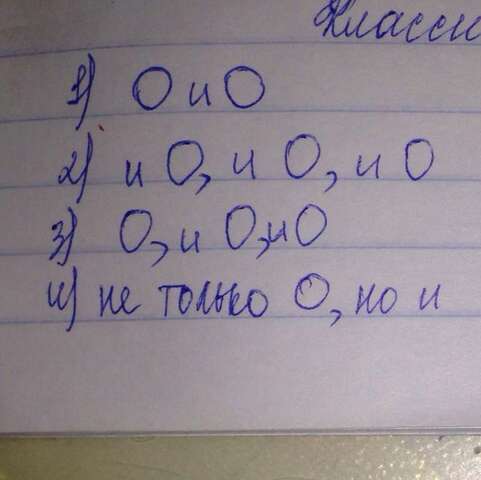 Класси
1) О и О
2) и О, и О, и О
3) О, и О, и О
4) не только О, но и